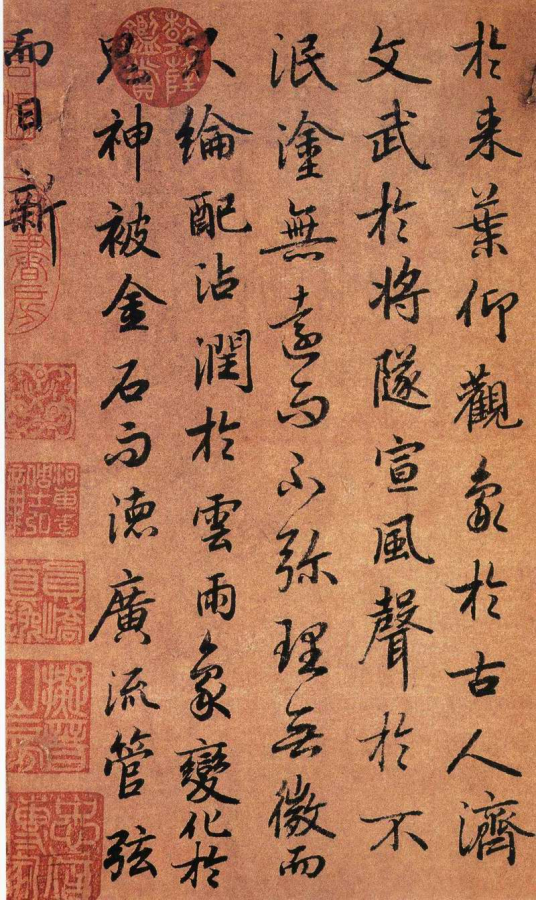 於来葉仰觀象於古人濟
文武於将隊宣風聲於不
泯塗無遠而不弥理無微而
不綸配沾潤於雲雨象變化於
鬼神被金石而德廣流管弦
而日新
乾隆鑑賞